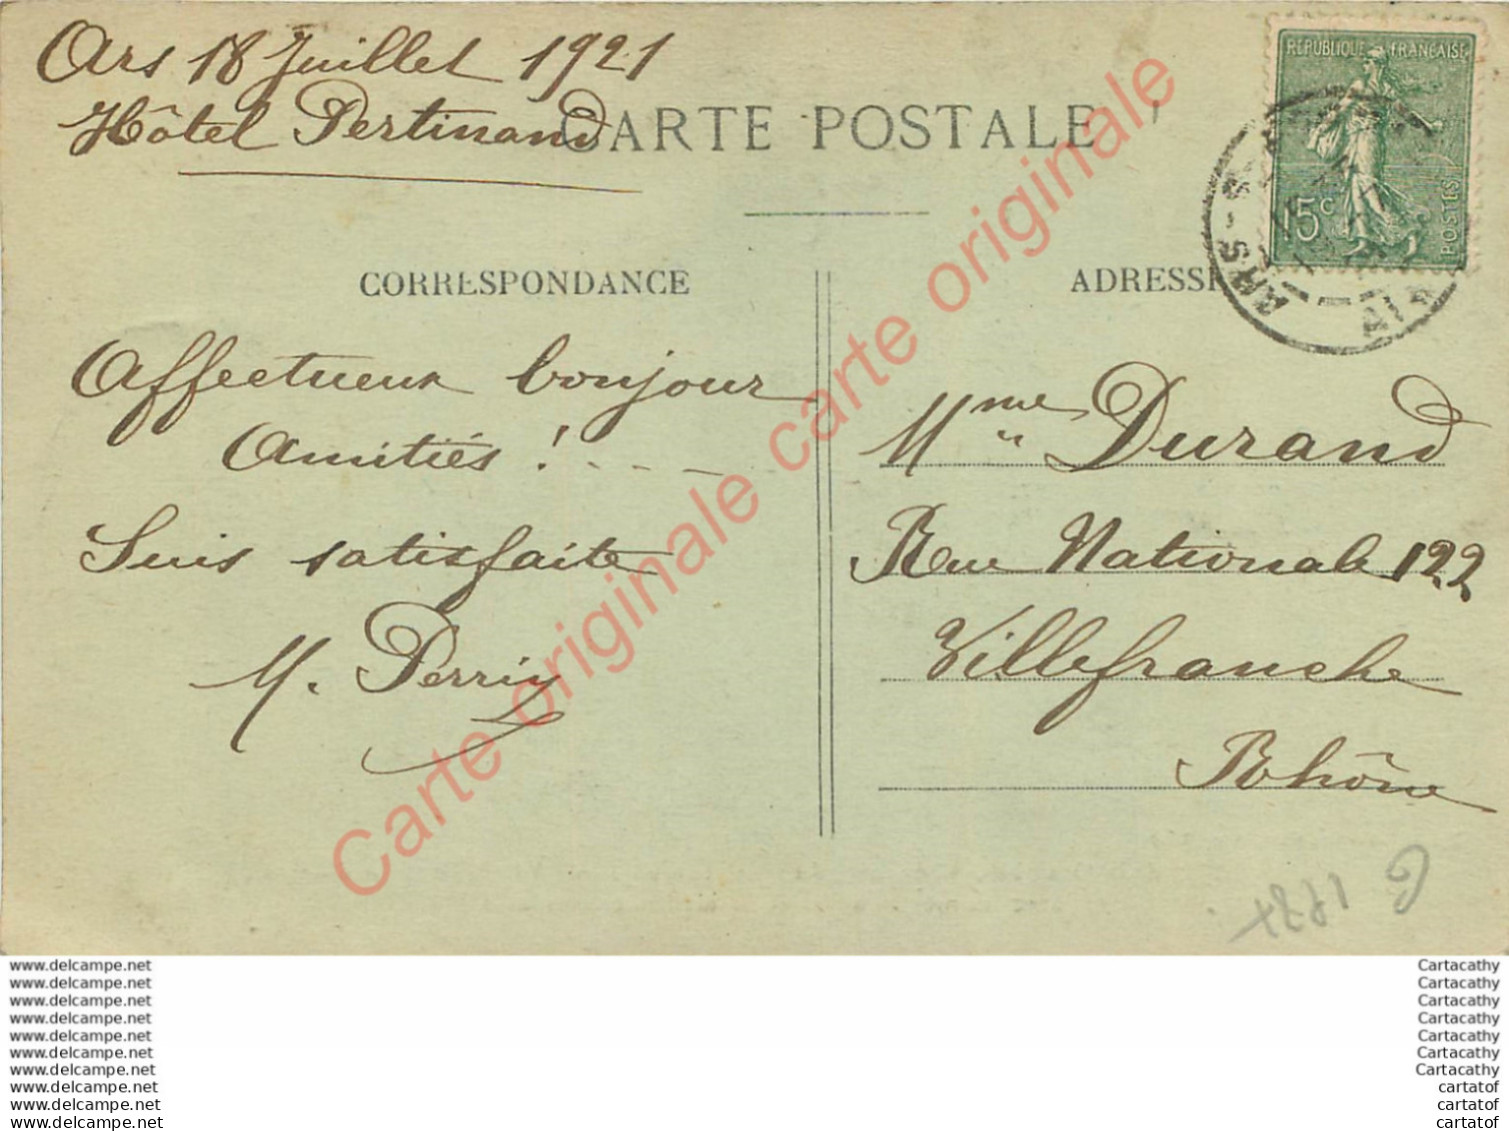 Ars 18 Juillet 1921
Hôtel Pertinand
CARTE POSTALE
REPUBLIQUE FRANÇAISE
15c
POSTES
ARS-S
AIN
CORRESPONDANCE
Affectueux bonjour
Amitiés !....
Suis satisfaite
M. Perrin
ADRESSE
Mme Durand
Rue Nationale 122
Villefranche
Rhône
Carte originale carte originale carte originale
www.delcampe.net
www.delcampe.net
www.delcampe.net
www.delcampe.net
www.delcampe.net
www.delcampe.net
www.delcampe.net
www.delcampe.net
www.delcampe.net
www.delcampe.net
Cartacathy
Cartacathy
Cartacathy
Cartacathy
Cartacathy
Cartacathy
Cartacathy
cartatof
cartatof
cartatof